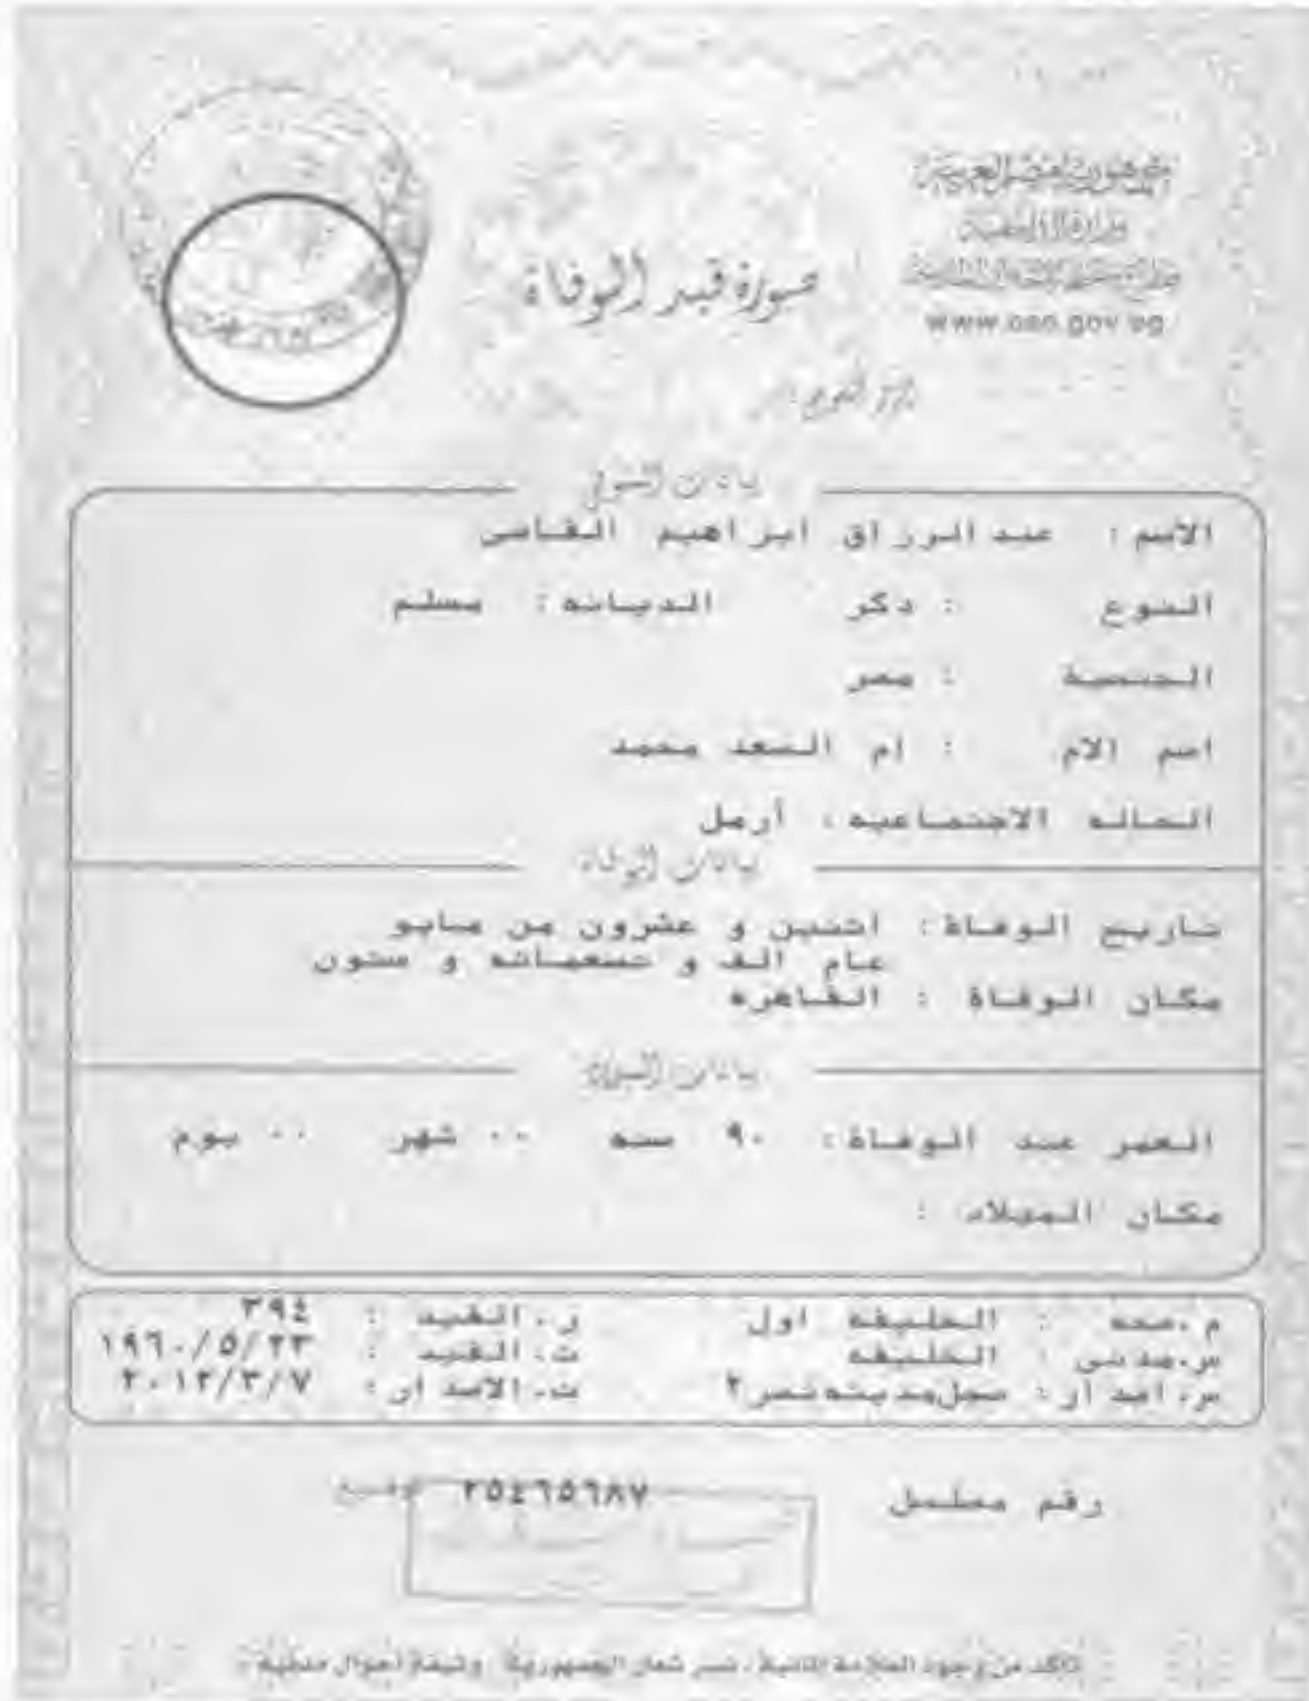 جمهورية مصر العربية
وزارة الداخلية
www.cso.gov.eg
صورة قيد الوفاة
الرقم القومي :
بيانات المتوفي
الاسم : عبد الرزاق ابراهيم القاضى
النوع : ذكر الديانه : مسلم
الجنسية : مصر
اسم الام : ام السعد محمد
الحاله الاجتماعيه : أرمل
بيانات الوفاة
تاريخ الوفاة : اثنين و عشرون من مايو
عام الف و تسعمائه و ستون
مكان الوفاة : القاهره
بيانات الميلاد
العمر عند الوفاة : ٩٠ سنه ٠٠ شهر ٠٠ يوم
مكان الميلاد :
م.صحه : الخليفه اول ر.القيد : ٣٩٤
س.مدنى : الخليفه ت.القيد : ١٩٦٠/٥/٢٣
س.اصدار : سجل مدينه نصر ٢ ت.الاصدار : ٢٠١٢/٣/٧
رقم مسلسل ٢٥٤٦٥٦٨٧
تأكد من وجود العلامة المائية ، نسر شعار الجمهورية وثيقة أحوال مدنية